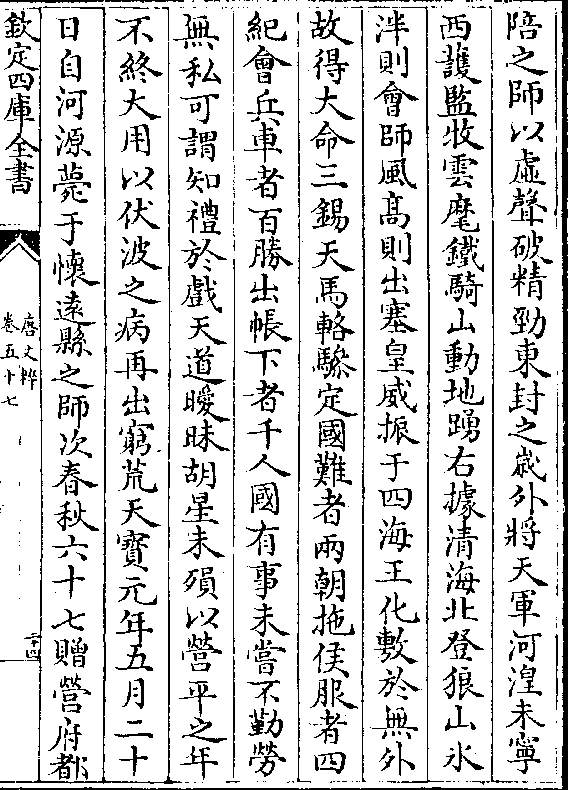 陪之師以虛聲破精勁東封之歲外將天軍河湟未寧
西護監牧雲麾鐵騎山動地踴右據清海北登狼山氷
泮則會師風髙則出塞皇威振于四海王化敷於無外
故得大命三錫天馬輅驂定國難者兩朝拖侯服者四
紀會兵車者百勝出帳下者千人國有事未嘗不勤勞
無私可謂知禮於戲天道曖昧胡星未殞以營平之年
不終大用以伏波之病再出窮荒天寳元年五月二十
日自河源薨于懷遠縣之師次春秋六十七贈營府都
欽定四庫全書
唐文粹
卷五十七
二十四